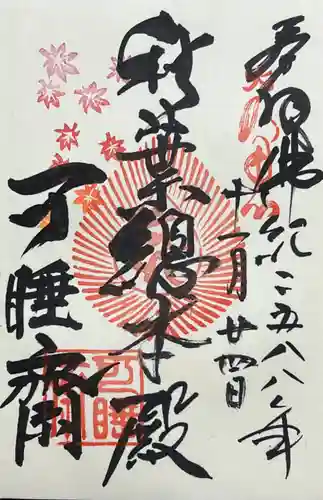 奉拝 佛紀二五八八年
十一月廿四日
秋葉總本殿
可睡齋